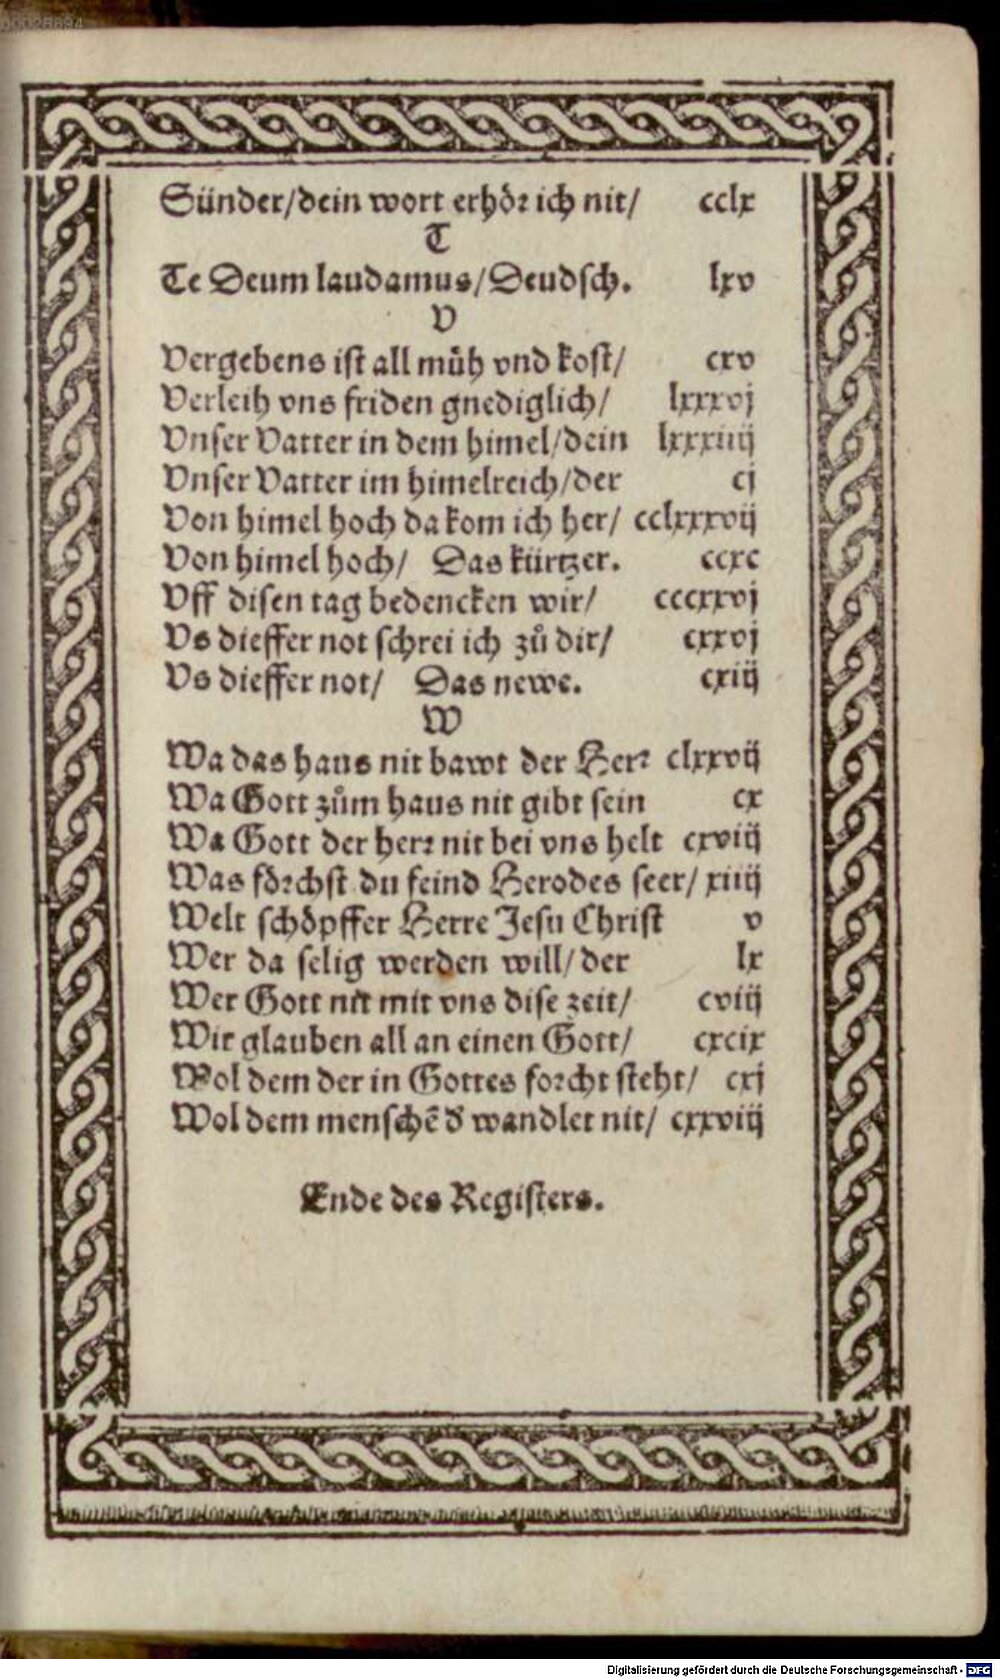 00028694
Sünder/dein wort erhöꝛ ich nit/ cclx
T
Te Deum laudamus/Deudsch. lxv
V
Vergebens ist all müh vnd kost/ cxv
Verleih vns friden gnediglich/ lxxxvj
Vnser Vatter in dem himel/dein lxxxiiij
Vnser Vatter im himelreich/der cj
Von himel hoch da kom ich her/ cclxxxvij
Von himel hoch/ Das kürtzer. ccxc
Vff disen tag bedencken wir/ cccxxvj
Vs dieffer not schrei ich zů dir/ cxxvj
Vs dieffer not/ Das newe. cxiij
W
Wa das haus nit bawt der Herꝛ clxxvij
Wa Gott zům haus nit gibt sein cx
Wa Gott der herꝛ nit bei vns helt cxviij
Was föꝛchst du feind Herodes seer/ xiiij
Welt schöpffer Herre Jesu Christ v
Wer da selig werden will/der lx
Wer Gott nit mit vns dise zeit/ cviij
Wir glauben all an einen Gott/ cxcix
Wol dem der in Gottes foꝛcht steht/ cxj
Wol dem menschē d̕ wandlet nit/ cxxviij
Ende des Registers.
Digitalisierung gefördert durch die Deutsche Forschungsgemeinschaft - DFG